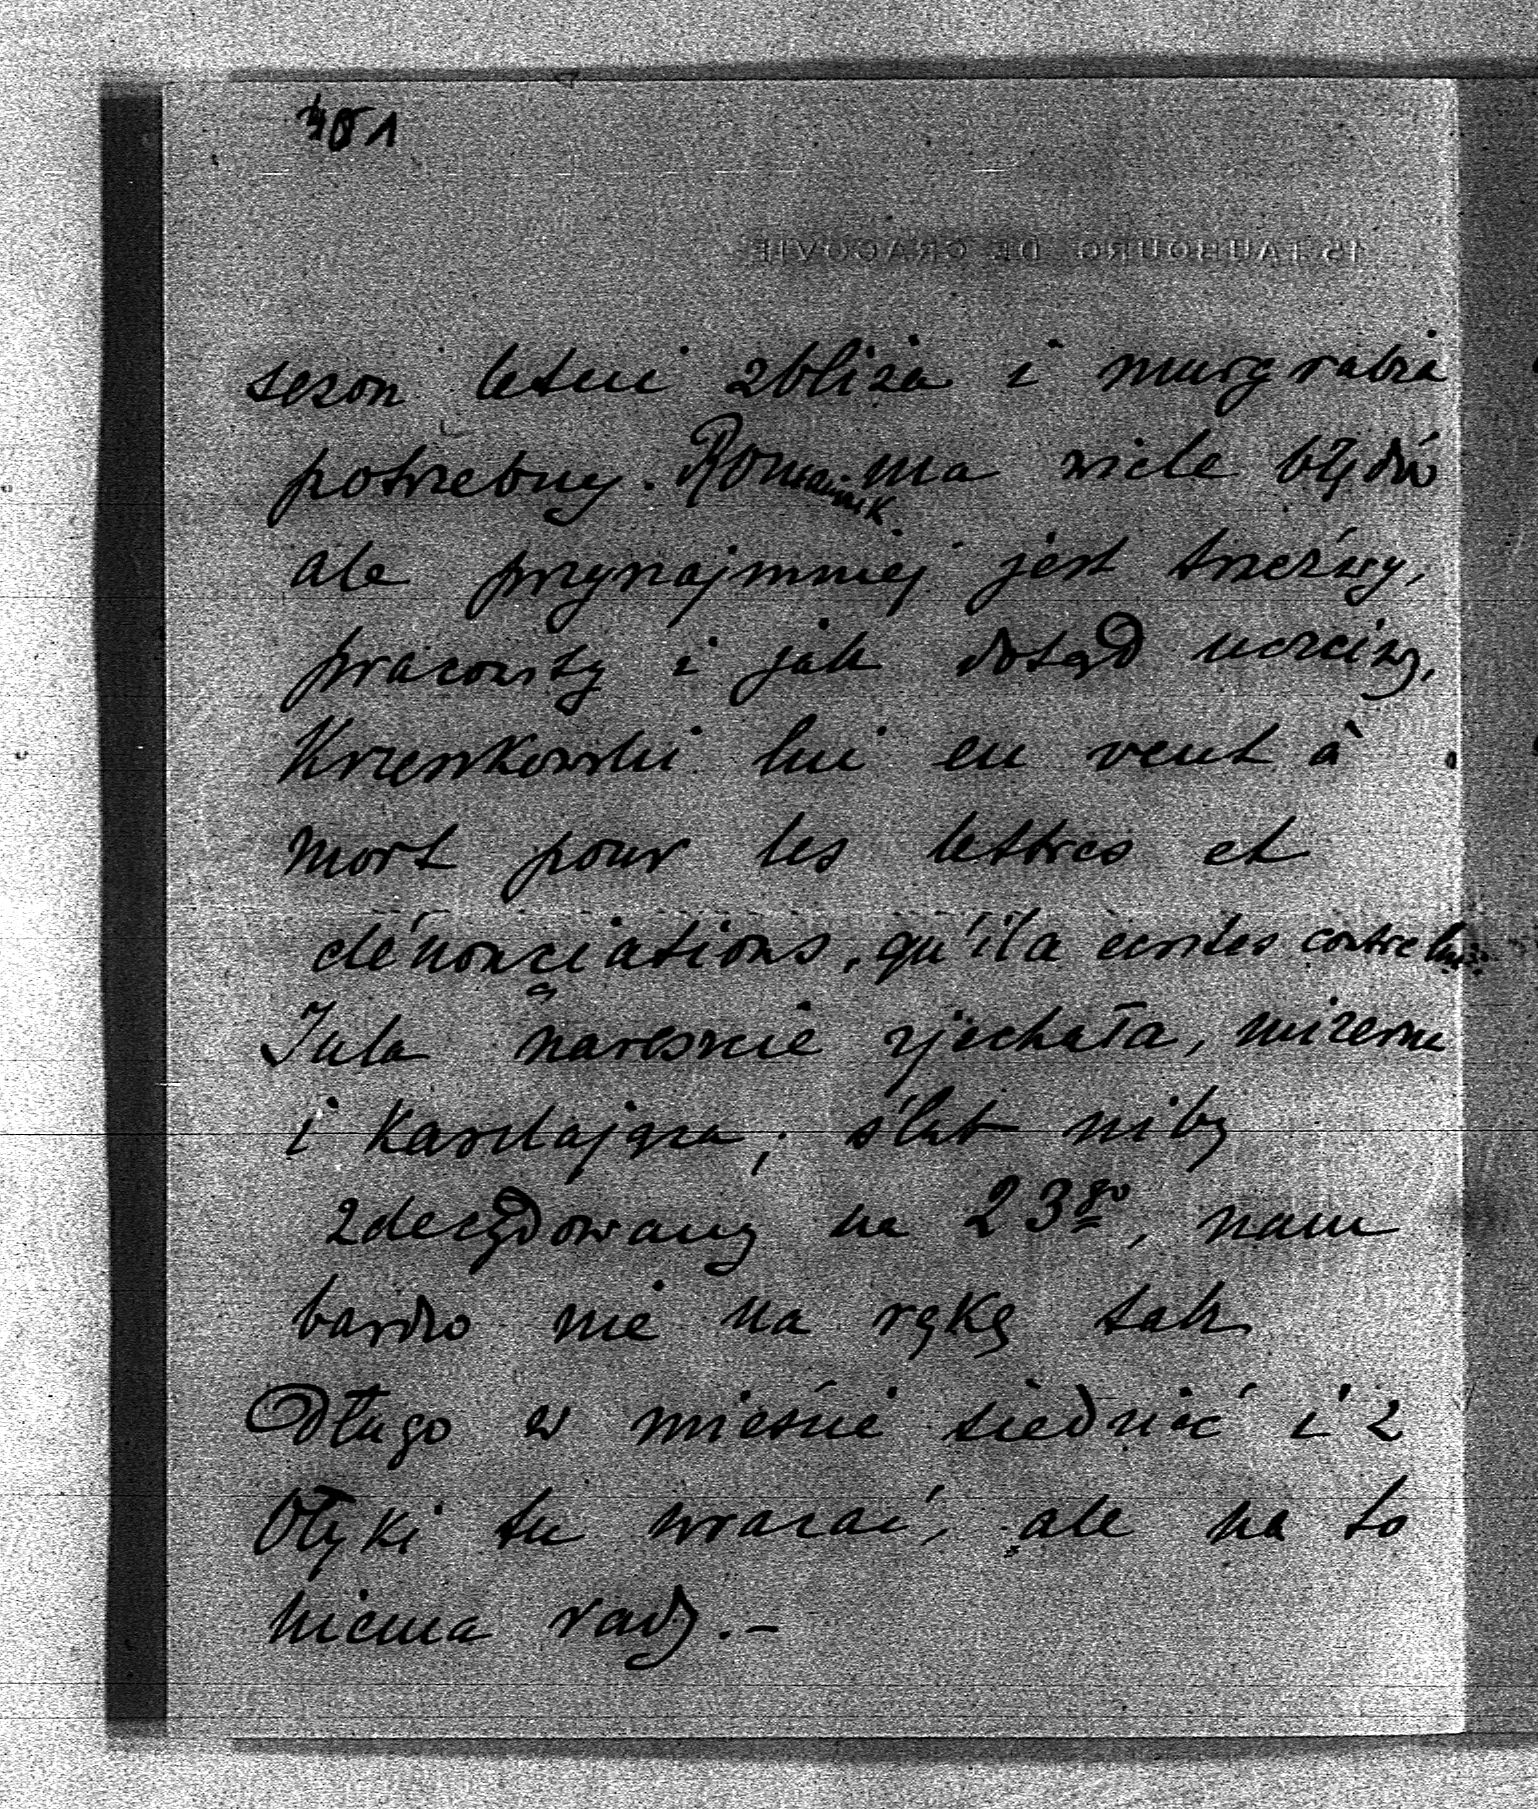 401
15. FAUBOURG DE CRACOVIE
sezon letni zbliża i murgrabia
potrzebny. Romaniuk ma wiele błędów
ale przynajmniej jest trzeźwy,
pracowity i jak dotąd uczciwy,
lui en veut à
mort pour les lettres et
dénonciations, qu'il a écrites contre lui.
Jula nareszcie zjechała, mizerna
i kaszlająca; ślub niby
zdecydowany na 23go, nam
bardzo nie na rękę tak
długo w mieście siedzieć i z
Ołyki tu wracać, ale na to
niema rady.-